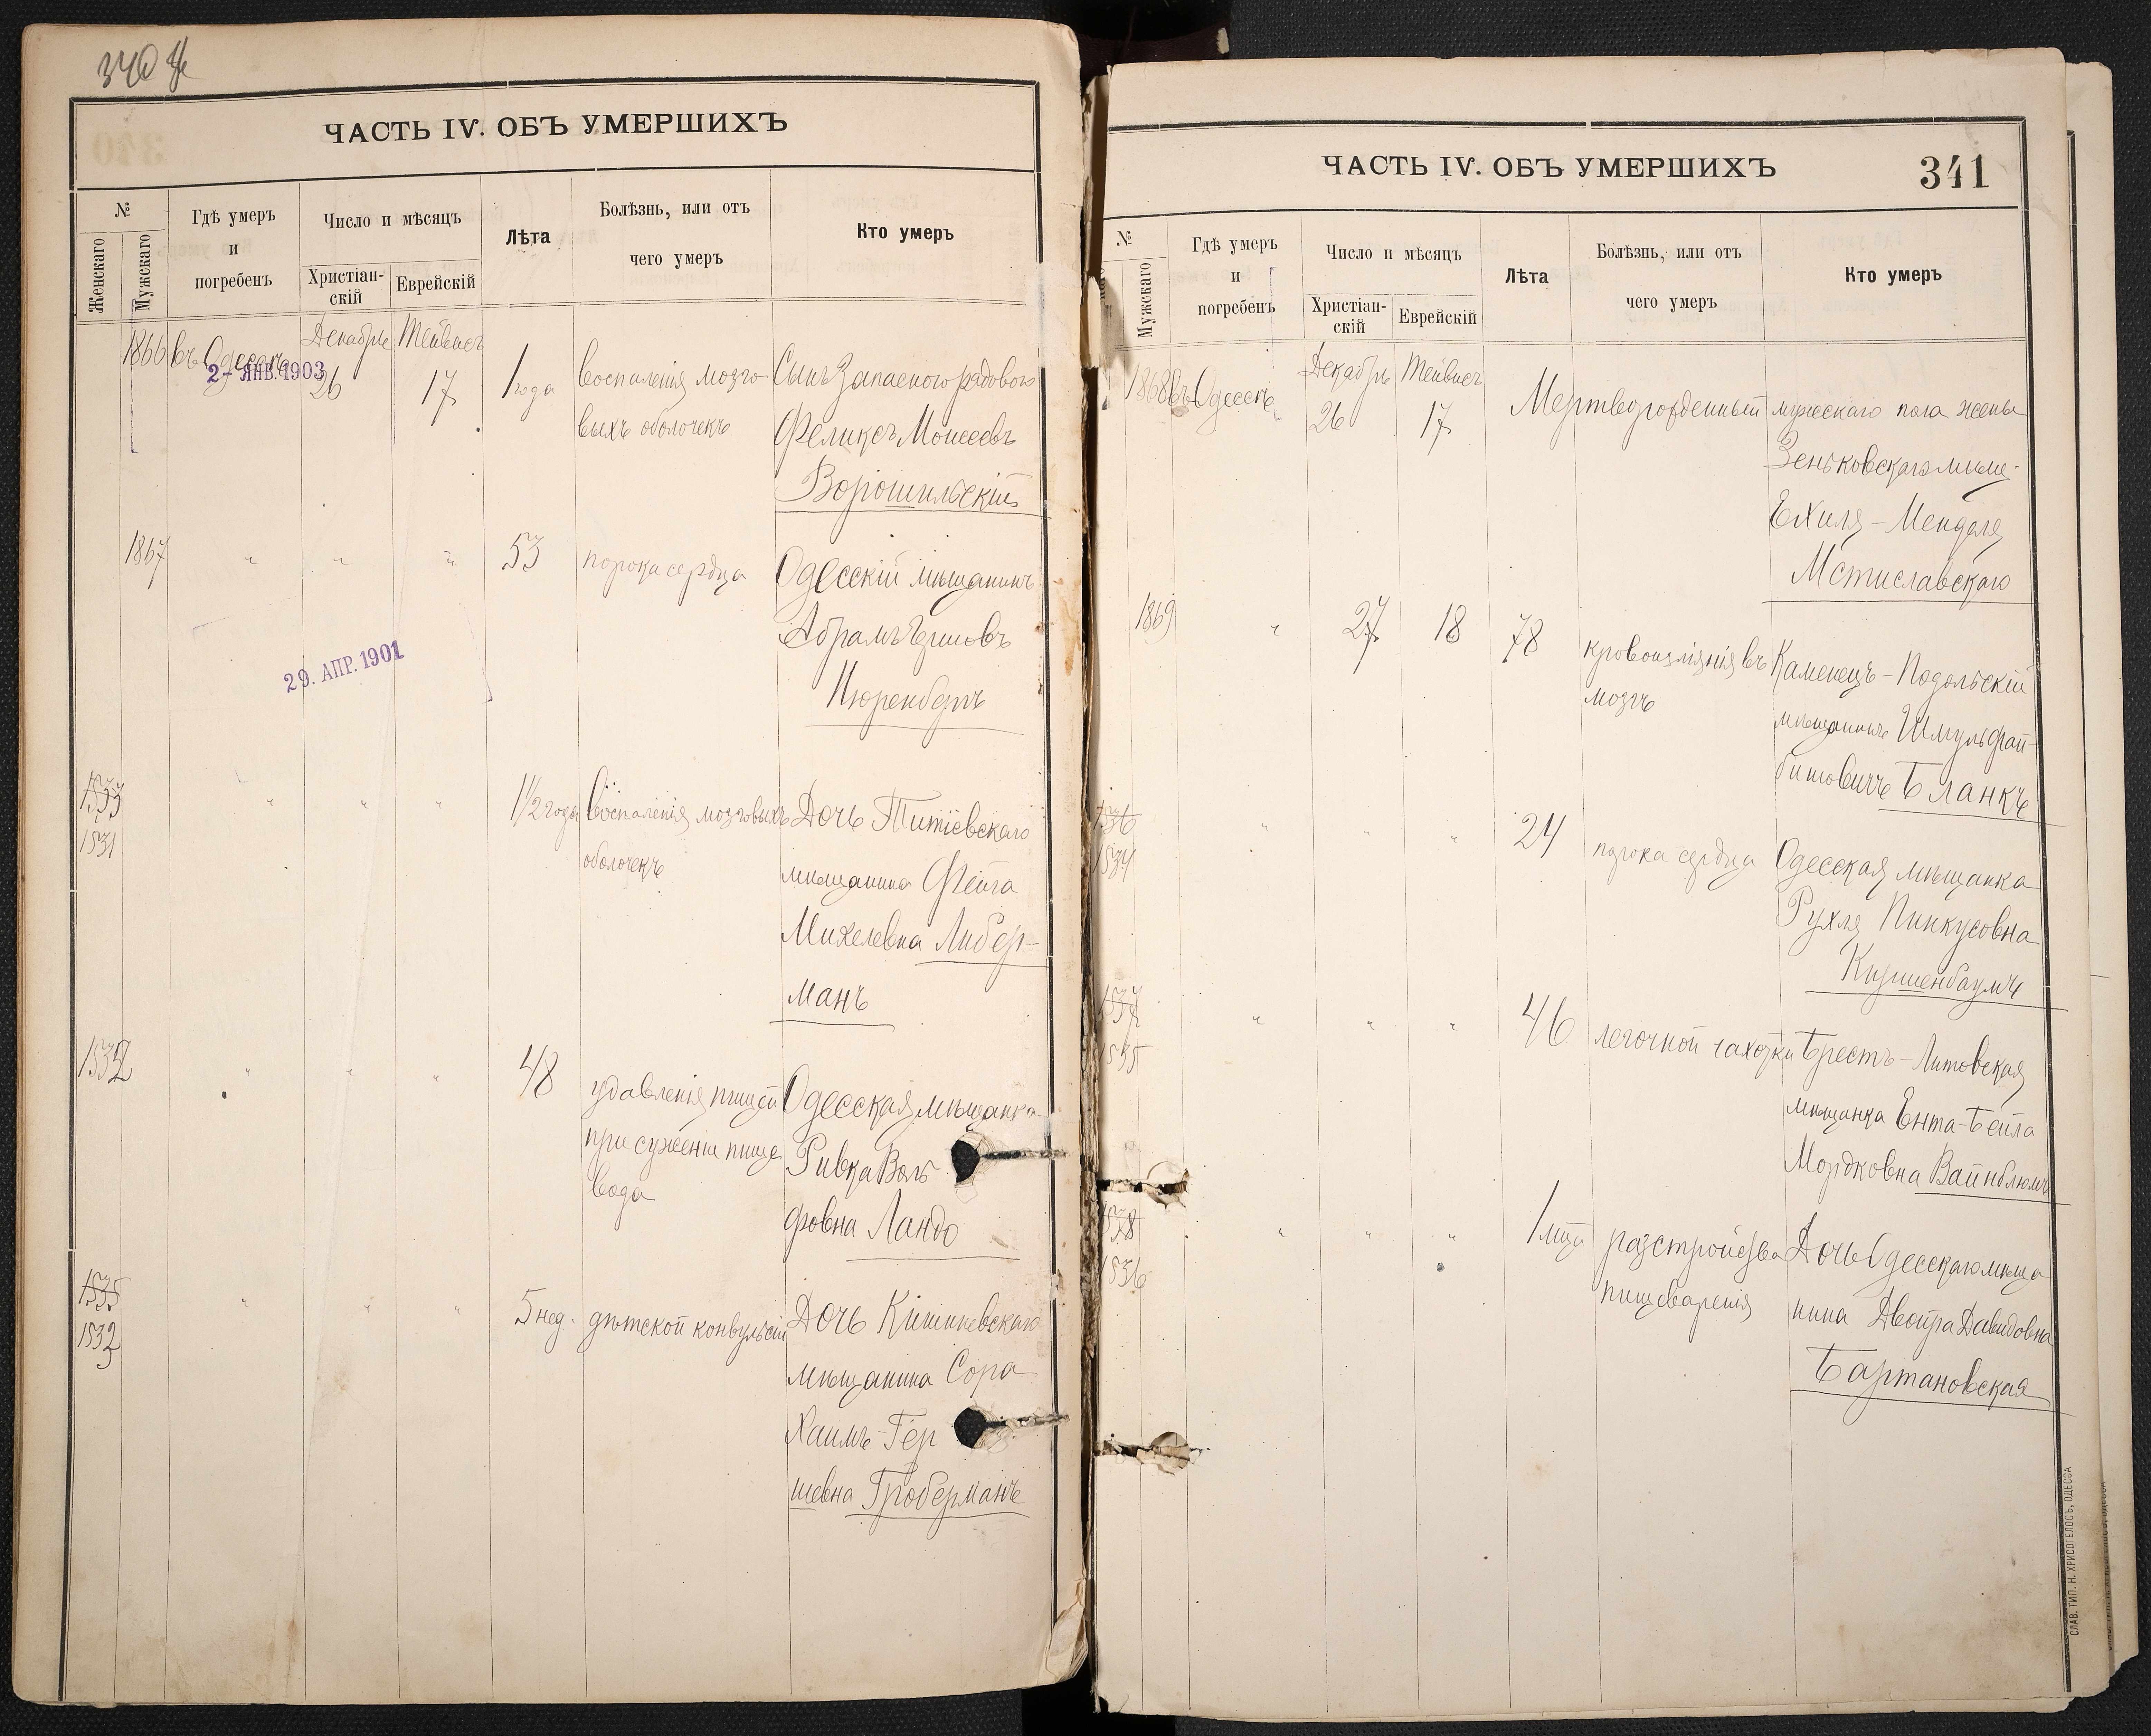 340
ЧАСТЬ IV. ОБЪ УМЕРШИХЪ
№
Женскаго
Мужскаго
Гдѣ умеръ
и
погребенъ
Число и мѣсяцъ
Христіан-
скій
Еврейскій
Лѣта
Болѣзнь, или отъ
чего умеръ
Кто умеръ
1866 въ Одессѣ Декабрь Тейвисъ
2- ЯНВ. 1903
26 17 1 года воспаленія мозго-
выхъ оболочекъ
Сынъ Запасного рядового
Феликсъ Моисеевъ
Ворошильскій
1867 " " " 53 порока сердца
Одесскій мѣщанинъ
Абрамъ
Нюренбергъ
29. АПР. 1901
1533
1531
" " " 1 1/2 года воспаленія мозговыхъ
оболочекъ
Дочь Титіевскаго
мѣщанина Фейга
Михелевна Либер-
манъ
1532 " " " 48 удавленія пищей
при суженіи пище
вода
Одесская мѣщанка
Ривка Воль
фовна Ландо
1535
1533
" " " 5 нед. дѣтской конвульсіи
Дочь Кишиневскаго
мѣщанина Сора
Хаимъ-Гер
шевна Гроберманъ
ЧАСТЬ IV. ОБЪ УМЕРШИХЪ
341
№
Мужскаго
Гдѣ умеръ
и
погребенъ
Число и мѣсяцъ
Христіан-
скій
Еврейскій
Лѣта
Болѣзнь, или отъ
чего умеръ
Кто умеръ
1868 въ Одессѣ Декабрь Тейвисъ
26 17 Мертворожденный мужескаго пола жены
Зеньковскаго мѣщ.
Ехиля-Менделя
Мстиславскаго
1869 " 27 18 78 кровоизліянія въ
мозгъ
Каменецъ-Подольскій
мѣщанинъ Шмуль Фай-
бишовичъ Бланкъ
1536
1534
" " " 24 порока сердца
Одесская мѣщанка
Рухля Пинкусовна
Киршенбаумъ
1537
1535
" " " 46 легочной чахотки
Брестъ-Литовская
мѣщанка Ента-Бейла
Мордковна Вайнблюмъ
1538
1536
" " " 1 мѣс. разстройства
пищеваренія
Дочь Одесскаго мѣща
нина Двойра Давидовна
Бартановская
СЛАВ. ТИП. Н. ХРИСОГЕЛОСЪ, ОДЕССА